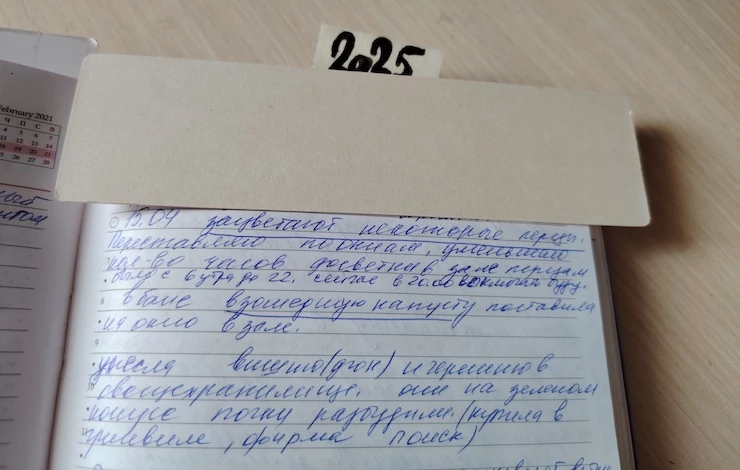 2025
February 2021
Ч П С В
4 5 6 7
11 12 13 14
18 19 20 21
25 26 27 28
15.04 зацветают некоторые перцы.
Переставляю по окнам, уменьшаю
кол-во часов досветки в зале перцам
было с 6 утра до 22. сейчас в 20.00 выключать буду.
взошедшую капусту поставила
на окно в зале.
унесла вишню (фон) и черешню в
овощехранилище. они на зеленом
конусе почки разбудили. (купила в
, фирма поиск)